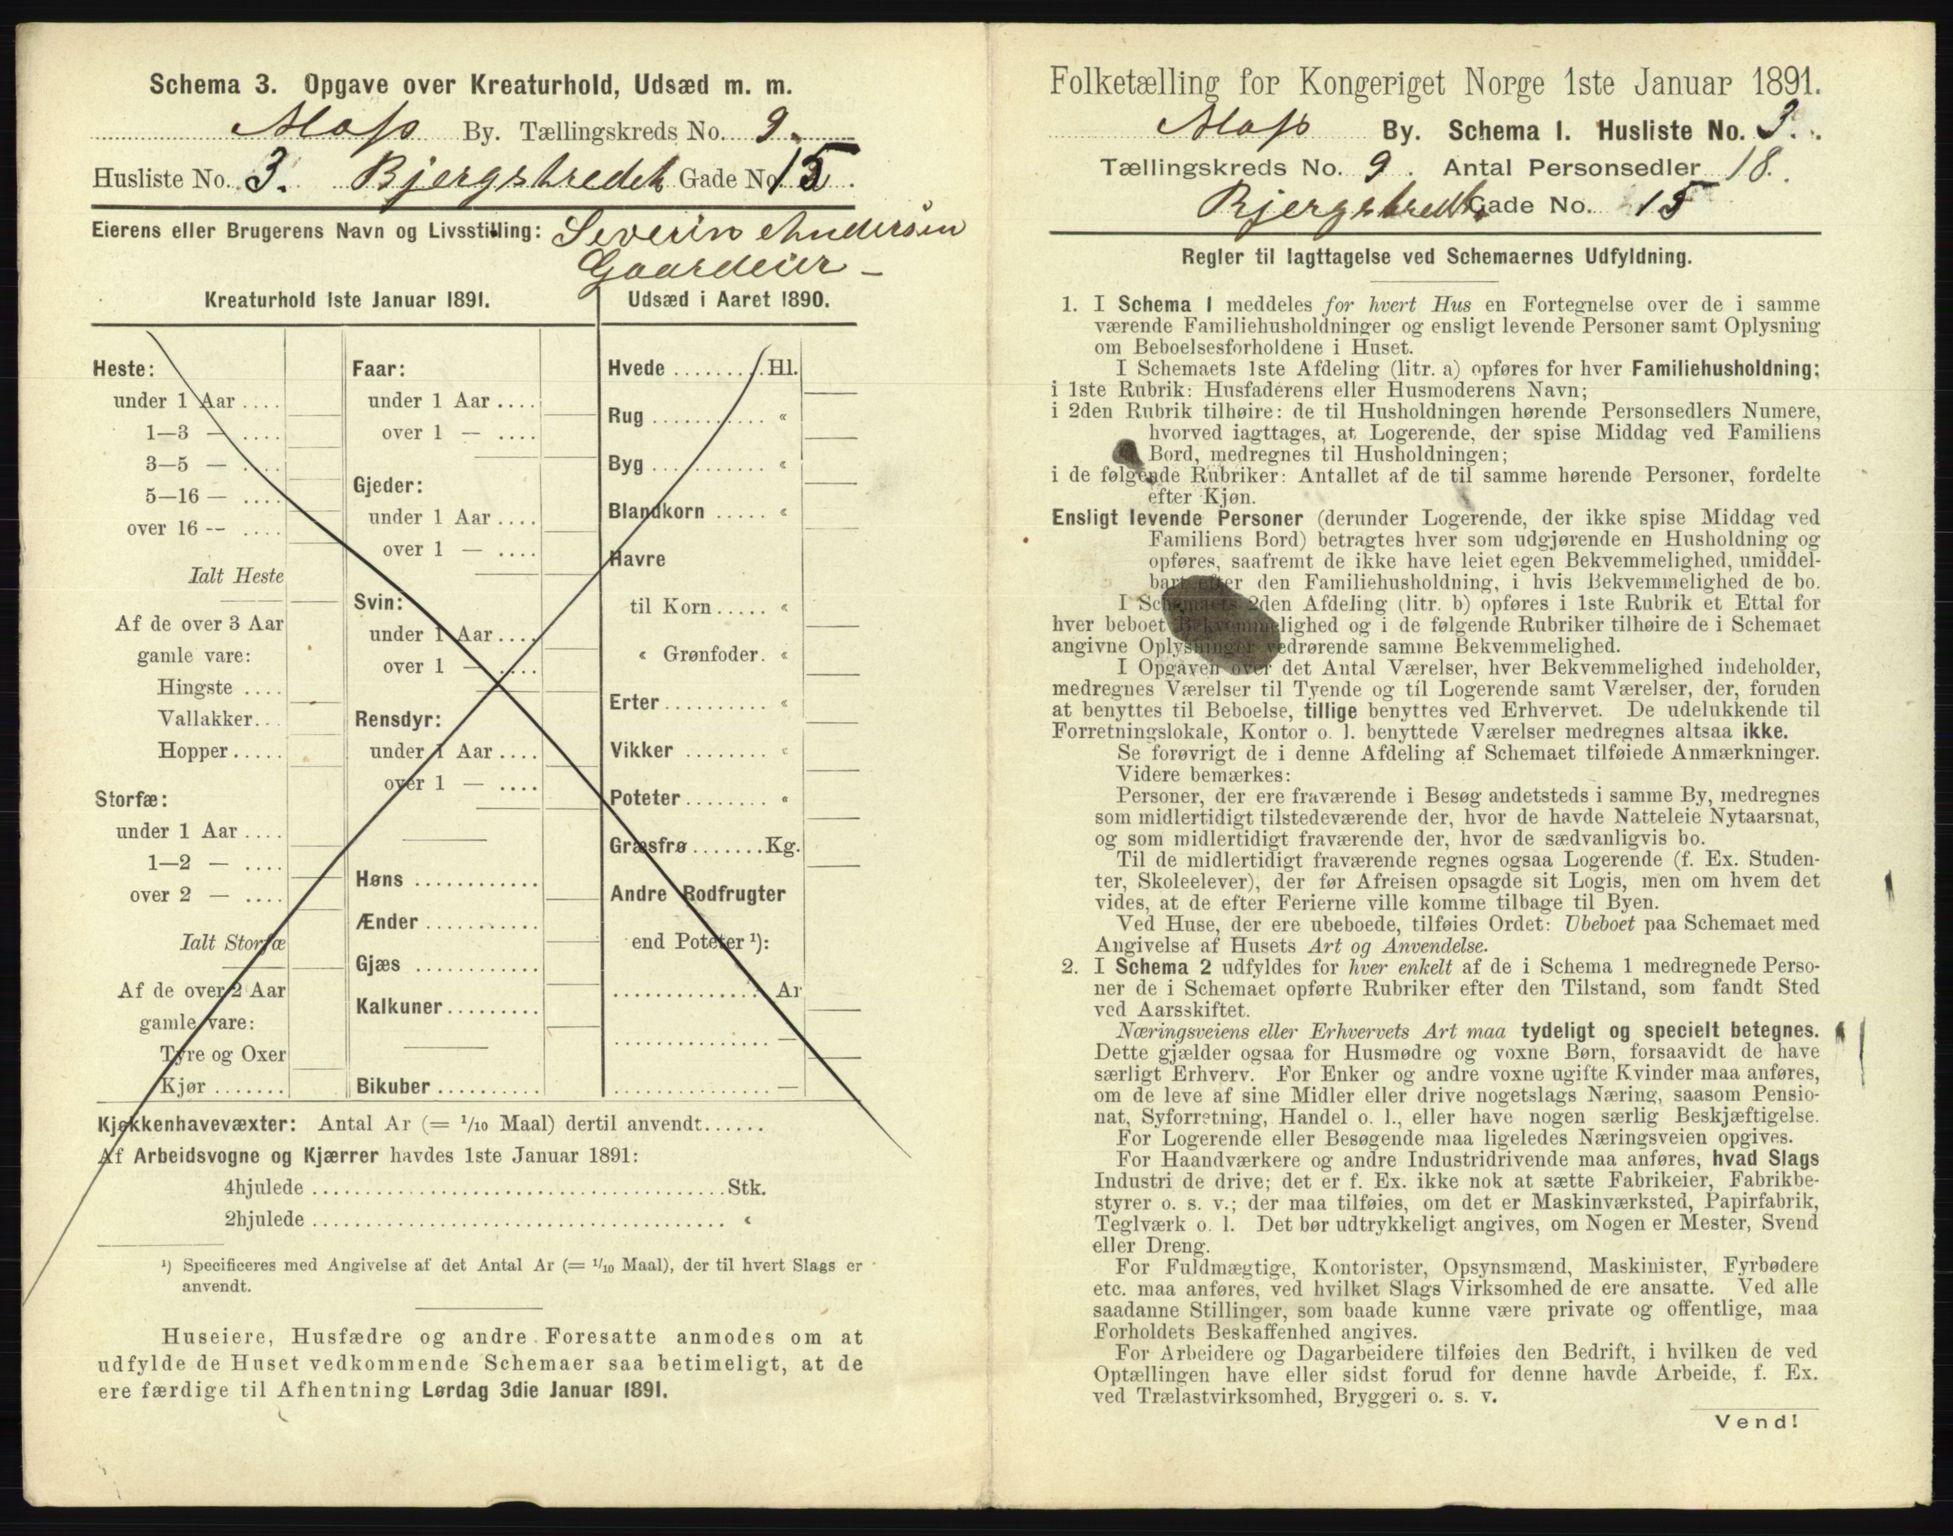 Schema 3. Opgave over Kreaturhold, Udsæd m. m.
Moss By. Tællingskreds No. 9.
Husliste No. 3. Bjergstredet Gade No. 15.
Eierens eller Brugerens Navn og Livsstilling: Severin Andersen
Gaardeier —
Kreaturhold 1ste Januar 1891.
Heste:
under 1 Aar ....
1—3 — ....
3—5 — ....
5—16 — ....
over 16 -- ....
Ialt Heste
Af de over 3 Aar
gamle vare:
Hingste ....
Vallakker...
Hopper ....
Storfæ:
under 1 Aar ....
1—2 — ....
over 2 — ....
Ialt Storfæ
Af de over 2 Aar
gamle vare:
Tyre og Oxer
Kjør .......
Faar:
under 1 Aar ....
over 1 — ....
Gjeder:
under 1 Aar ....
over 1 — ....
Svin:
under 1 Aar ....
over 1 — ....
Rensdyr:
under 1 Aar ....
over 1 — ....
Høns ............
Ænder ...........
Gjæs ............
Kalkuner.........
Bikuber ..........
Udsæd i Aaret 1890.
Hvede ........ Hl.
Rug .......... «
Byg .......... «
Blandkorn ..... «
Havre
til Korn ..... «
« Grønfoder. «
Erter.......... «
Vikker ........ «
Poteter ........ «
Græsfrø ....... Kg.
Andre Rodfrugter
end Poteter ¹):
.............. Ar
.............. —
.............. —
Kjøkkenhavevæxter: Antal Ar (= 1/10 Maal) dertil anvendt......
Af Arbeidsvogne og Kjærrer havdes 1ste Januar 1891:
4hjulede ........................................ Stk.
2hjulede ........................................ «
¹) Specificeres med Angivelse af det Antal Ar (= 1/10 Maal), der til hvert Slags er
anvendt.
Huseiere, Husfædre og andre Foresatte anmodes om at
udfylde de Huset vedkommende Schemaer saa betimeligt, at de
ere færdige til Afhentning Lørdag 3die Januar 1891.
Folketælling for Kongeriget Norge 1ste Januar 1891.
Moss By. Schema I. Husliste No. 3.
Tællingskreds No. 9. Antal Personsedler 18.
Bjergstredet Gade No. 15
Regler til Iagttagelse ved Schemaernes Udfyldning.
1. I Schema I meddeles for hvert Hus en Fortegnelse over de i samme
værende Familiehusholdninger og ensligt levende Personer samt Oplysning
om Beboelsesforholdene i Huset.
I Schemaets 1ste Afdeling (litr. a) opføres for hver Familiehusholdning:
i 1ste Rubrik: Husfaderens eller Husmoderens Navn;
i 2den Rubrik tilhøire: de til Husholdningen hørende Personsedlers Numere,
hvorved iagttages, at Logerende, der spise Middag ved Familiens
Bord, medregnes til Husholdningen;
i de følgende Rubriker: Antallet af de til samme hørende Personer, fordelte
efter Kjøn.
Ensligt levende Personer (derunder Logerende, der ikke spise Middag ved
Familiens Bord) betragtes hver som udgjørende en Husholdning og
opføres, saafremt de ikke have leiet egen Bekvemmelighed, umiddel-
bart efter den Familiehusholdning, i hvis Bekvemmelighed de bo.
I Schemaets 2den Afdeling (litr. b) opføres i 1ste Rubrik et Ettal for
hver beboet Bekvemmelighed og i de følgende Rubriker tilhøire de i Schemaet
angivne Oplysninger vedrørende samme Bekvemmelighed.
I Opgaven over det Antal Værelser, hver Bekvemmelighed indeholder,
medregnes Værelser til Tyende og til Logerende samt Værelser, der, foruden
at benyttes til Beboelse, tillige benyttes ved Erhvervet. De udelukkende til
Forretningslokale, Kontor o. l. benyttede Værelser medregnes altsaa ikke.
Se forøvrigt de i denne Afdeling af Schemaet tilføiede Anmærkninger.
Videre bemærkes:
Personer, der ere fraværende i Besøg andetsteds i samme By, medregnes
som midlertidigt tilstedeværende der, hvor de havde Natteleie Nytaarsnat,
og som midlertidigt fraværende der, hvor de sædvanligvis bo.
Til de midlertidigt fraværende regnes ogsaa Logerende (f. Ex. Studen-
ter, Skoleelever), der før Afreisen opsagde sit Logis, men om hvem det
vides, at de efter Ferierne ville komme tilbage til Byen.
Ved Huse, der ere ubeboede, tilføies Ordet: Ubeboet paa Schemaet med
Angivelse af Husets Art og Anvendelse.
2. I Schema 2 udfyldes for hver enkelt af de i Schema 1 medregnede Perso-
ner de i Schemaet opførte Rubriker efter den Tilstand, som fandt Sted
ved Aarsskiftet.
Næringsveiens eller Erhvervets Art maa tydeligt og specielt betegnes.
Dette gjælder ogsaa for Husmødre og voxne Børn, forsaavidt de have
særligt Erhverv. For Enker og andre voxne ugifte Kvinder maa anføres,
om de leve af sine Midler eller drive nogetslags Næring, saasom Pensio-
nat, Syforretning, Handel o. l., eller have nogen særlig Beskjæftigelse.
For Logerende eller Besøgende maa ligeledes Næringsveien opgives.
For Haandværkere og andre Industridrivende maa anføres, hvad Slags
Industri de drive; det er f. Ex. ikke nok at sætte Fabrikeier, Fabrikbe-
styrer o. s. v.; der maa tilføies, om det er Maskinværksted, Papirfabrik,
Teglværk o. l. Det bør udtrykkeligt angives, om Nogen er Mester, Svend
eller Dreng.
For Fuldmægtige, Kontorister, Opsynsmænd, Maskinister, Fyrbødere
etc. maa anføres, ved hvilket Slags Virksomhed de ere ansatte. Ved alle
saadanne Stillinger, som baade kunne være private og offentlige, maa
Forholdets Beskaffenhed angives.
For Arbeidere og Dagarbeidere tilføies den Bedrift, i hvilken de ved
Optællingen have eller sidst forud for denne havde Arbeide, f. Ex.
ved Trælastvirksomhed, Bryggeri o. s. v.
Vend!